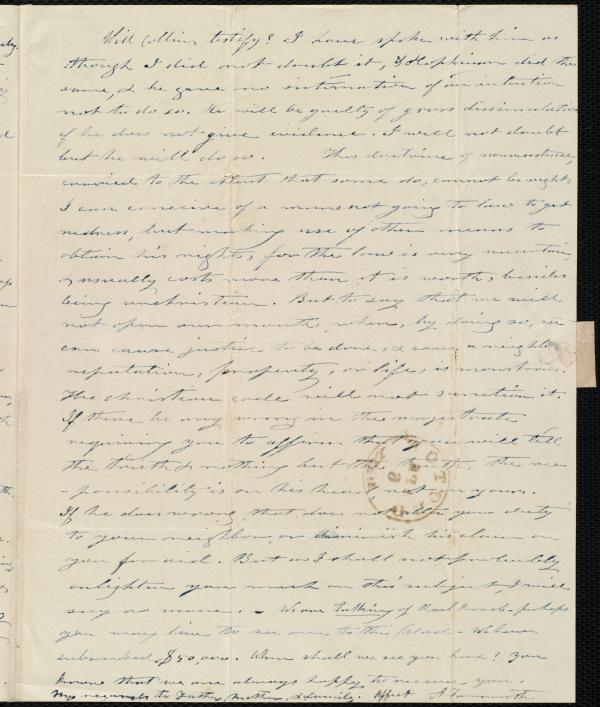 Will Collins testify? I have spoken with him as
though I did not doubt it, & Hopkinson did the
same, & he gave no intimation of an intention
not to do so. He will be guilty of gross dissimulation
if he does not give evidence. I will not doubt
but he will do so. This doctrine of nonresistance,
carried to the extent that some do, cannot be right.
I can conceive of a man's not going to law to get
redress, but making use of other means to
obtain his rights, for the law is very uncertain,
& usually costs more than it is worth, besides
being unchristian. But to say that we will
not open our mouths, when, by doing so, we
can cause justice to be done, & save a neighbor
reputation, property, or life, is monstrous.
The christian code will not sanction it.
If there be any wrong in the magistrate
requiring you to affirm that you will tell
the truth & nothing but the truth, the res-
-ponsibility is on his head not on yours.
If he does wrong that does not alter your duty
to your neighbor, or diminish his claim on
you for aid. But as I shall not probably
enlighten you much on this subject, I will
say no more. - We are talking of Rail Roads - perhaps
you may live to see one to this place - We have
subscribed $50,000. When shall we see you here? You
know that we are always happy to receive you.
My regards to Father, Mother, & family. Affect